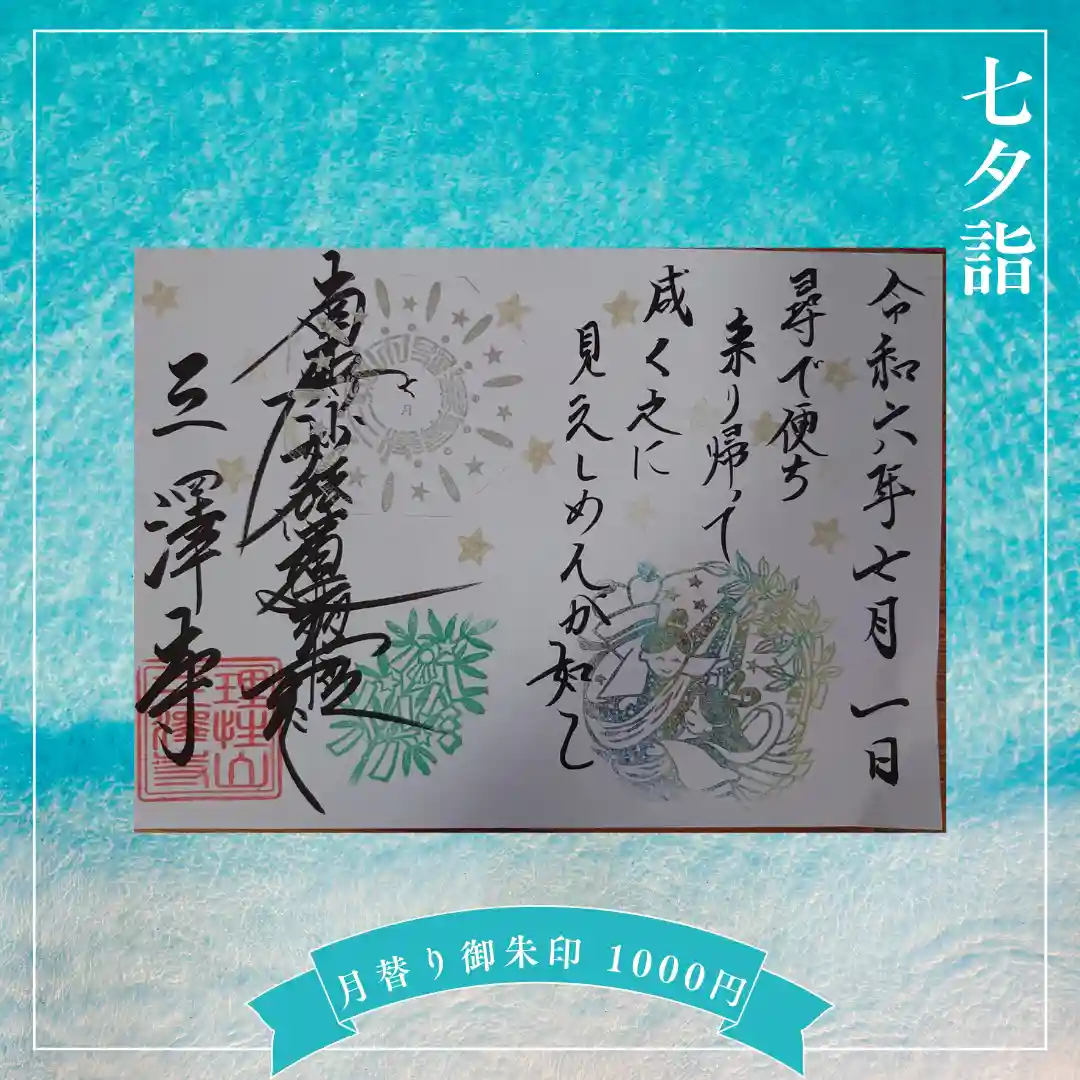 七夕詣
令和六年七月一日
尋で便ち
来り帰って
咸く之に
見えしめんが如し
南無妙法蓮華経
三澤寺
月替り御朱印 1000円